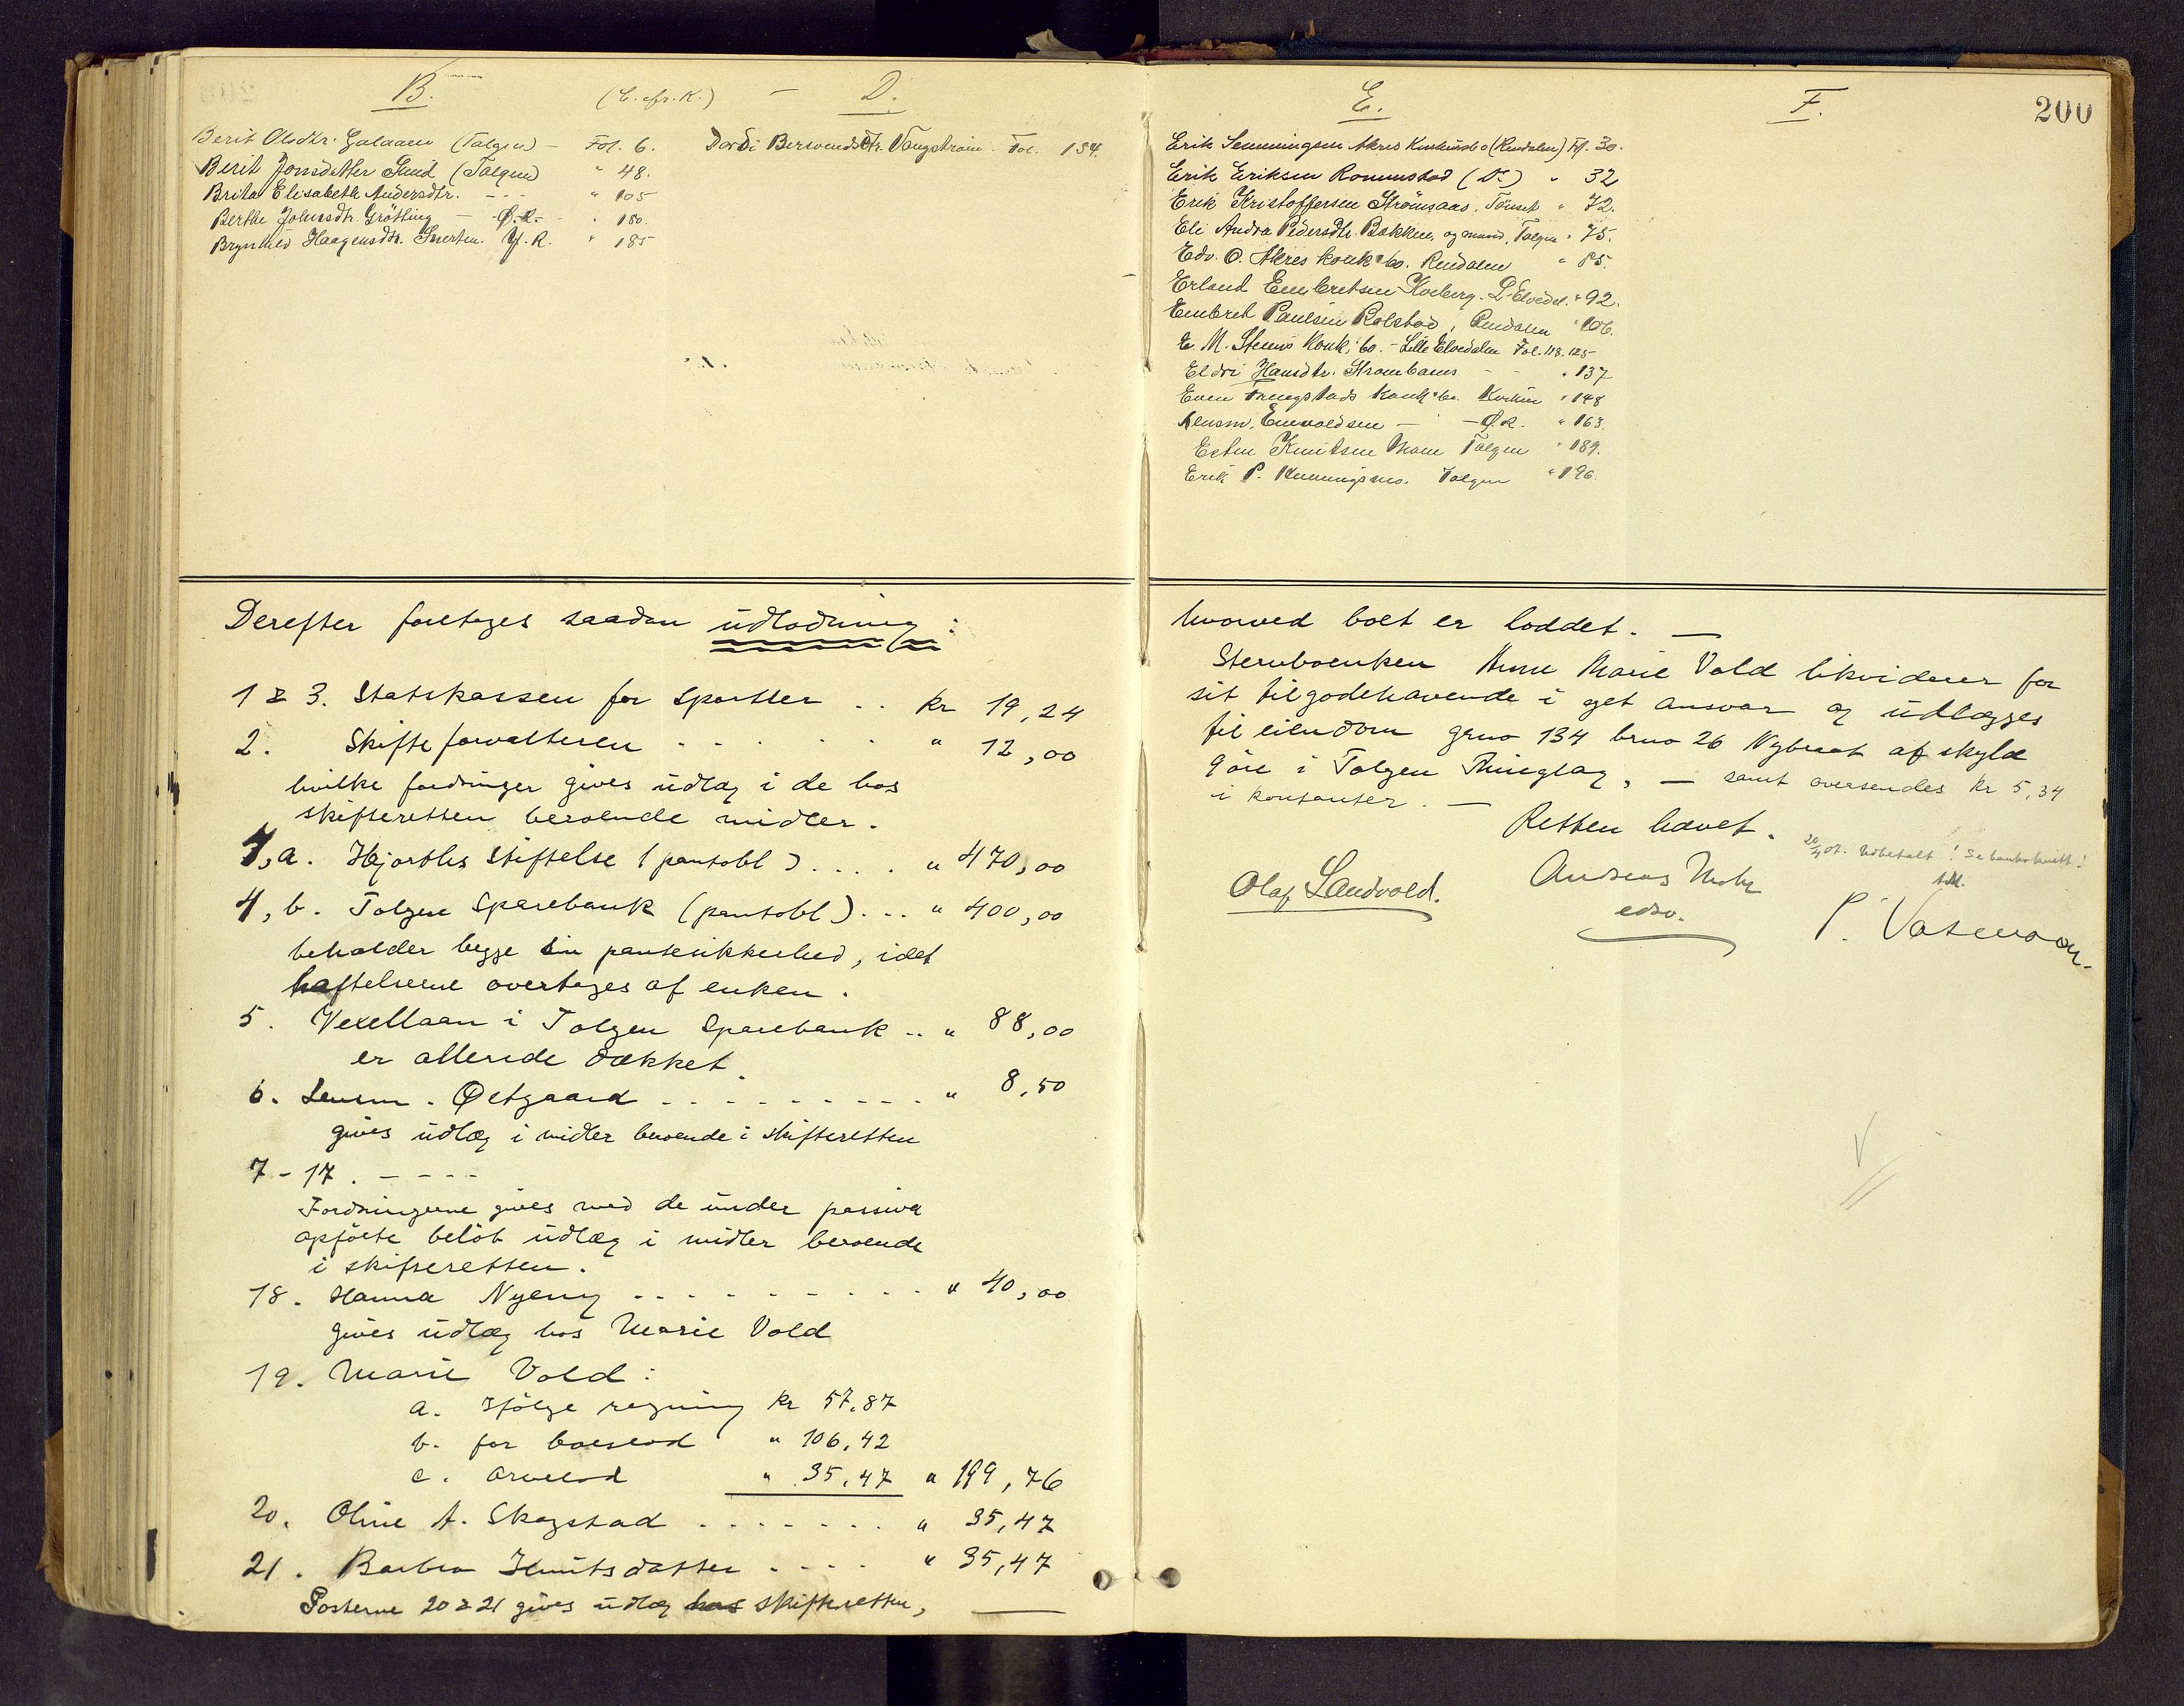 B. (C. cfr. K.) - D.
Berit Olsdtr. Galaaen (Tolgen) - Fol. 6.
Berit Jonsdatter Sund (Tolgen) " 48.
Brita Elisabeth Andersdtr. - - - " 105
Berthe Johnsdtr. Grötting - Ø.R. - " 180.
Brynhild Haagensdtr. Y.R. " 185
Dordi Fol. 134.
E. F. 200
Erik Akres Konkursbo (Rendalen) Fol. 30.
Erik Eriksen Romunstad (Do) " 32
Erik Kristoffersen Strömsaas, Tönset " 72.
Eli Andrea Pedersdtr. Bakken, og mand, Tolgen " 75.
Edv. O. Akres konk.bo. Rendalen " 85.
Erland Embretsen Koberg. L. Elvedal. " 92.
Embret Paulsen Rolstad, Rendalen " 106.
E. M. Stens Konk. bo. - Lille Elvedalen Fol. 118, 125
Eldri Hansdtr. - - " 137
Even konk. bo. " 148
Lensm. Enevoldsen - - Ø.R. " 163.
Esten Knutsen Moen Tolgen " 189.
Erik P. Tolgen " 196.
Derefter foretages saadan udlodning:
1 & 3. Statskassen for Sportler . . kr 19,24
2. Skifteforvalteren . . . . . " 12,00
hvilke fordringer gives udlæg i de hos
skifteretten beroende midler.
4, a. Hjorths Stiftelse (pantobl) . . . . " 470,00
4, b. Tolgen Sparebank (pantobl) . . . " 400,00
beholder begge sin pantesikkerhed, idet
hæftelserne overtages af enken.
5. Vexellaan i Tolgen Sparebank . . " 88,00
er allerede dækket.
6. Lensm. Østgaard . . . . . . . . . " 8,50
gives udlæg i midler beroende i skifteretten
7 - 17. - - - -
Fordringerne gives med de under passiva
opförte belöb udlæg i midler beroende
i skifteretten.
18. Hanna Nyeng . . . . . . . . . " 40,00
gives udlæg hos Marie Vold
19. Marie Vold:
a. Ifölge regning kr 57,87
b. for boeslod " 106,42
c. arvelod " 35,47 " 199,76
20. Oline A. Skogstad . . . . . . . " 35,47
21. Barbra Knutsdatter . . . . " 35,47
Posterne 20 & 21 gives udlæg hos skifteretten,
hvorved boet er loddet. -
Stervboenken Anne Marie Vold likviderer for
sit tilgodehavende i eget ansvar og udlægges
til eiendom gno 134 bno 26 af skyld
9 öre i Tolgen Thinglag, - samt oversendes kr 5,34
i kontanter. -
Retten hævet.
20/4 07. Udbetalt! Se bankokvitt!
Olaf Sandvold. Andreas Mohr
edsv.
P.